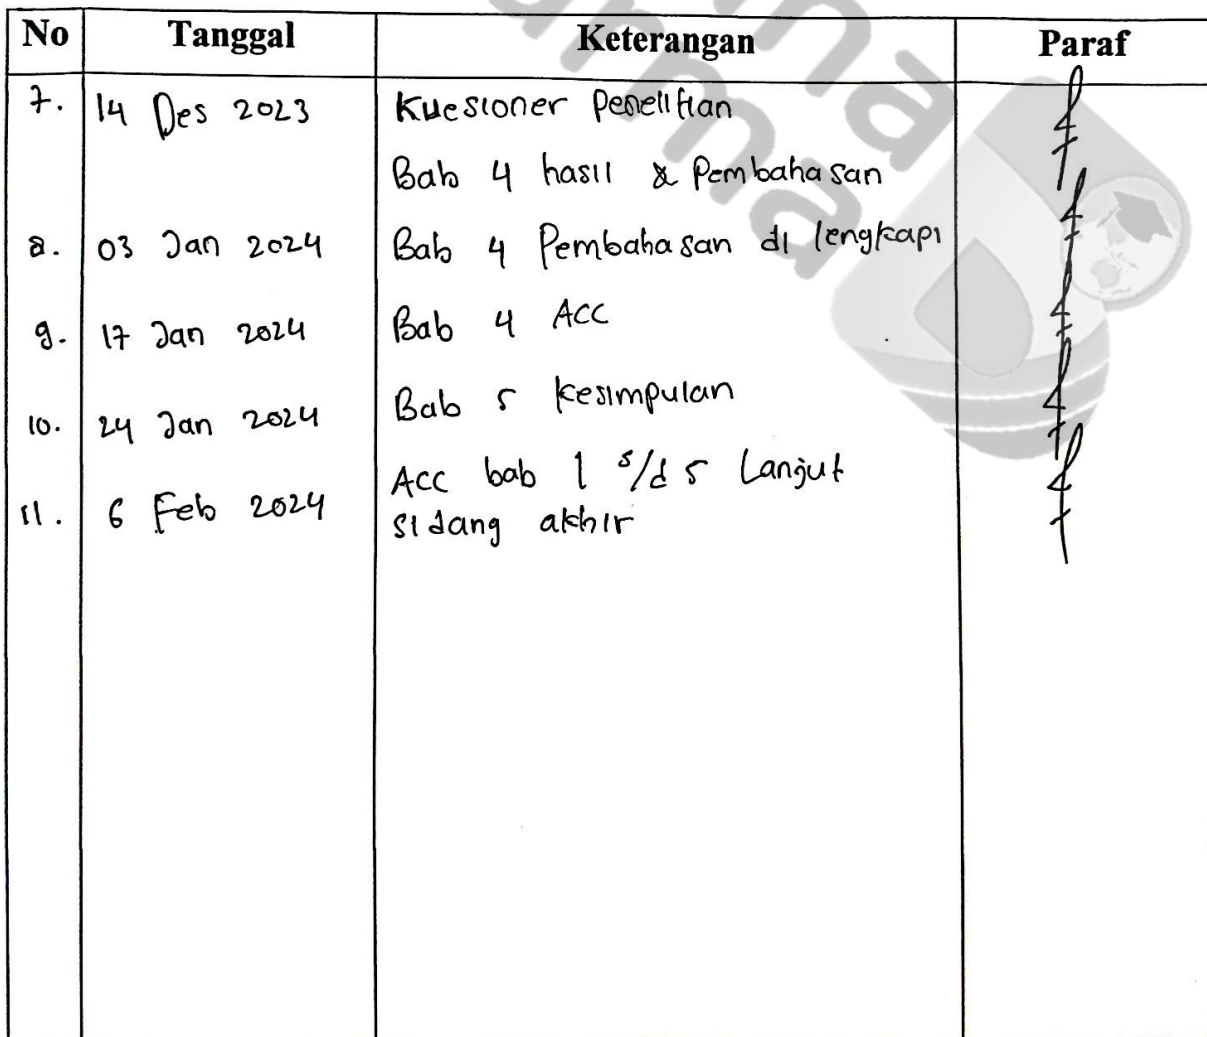 No Tanggal Keterangan Paraf
7. 14 Des 2023 Kuesioner Penelitian
Bab 4 hasil & Pembahasan
8. 03 Jan 2024 Bab 4 Pembahasan di lengkapi
9. 17 Jan 2024 Bab 4 ACC
10. 24 Jan 2024 Bab 5 kesimpulan
11. 6 Feb 2024 ACC bab 1 s/d 5 Lanjut
sidang akhir